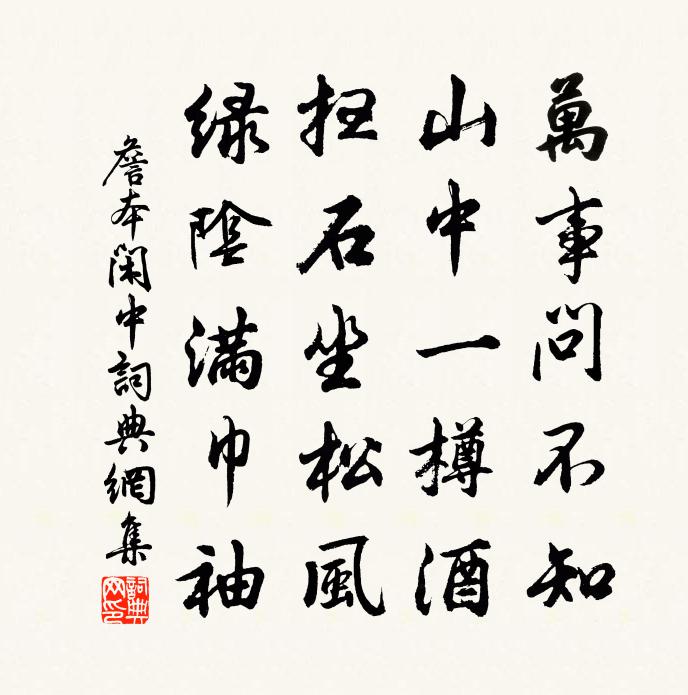 萬事問不知
山中一樽酒
扫石坐松風
绿陰满巾袖
詹本閑中詞典網集
詞典网印